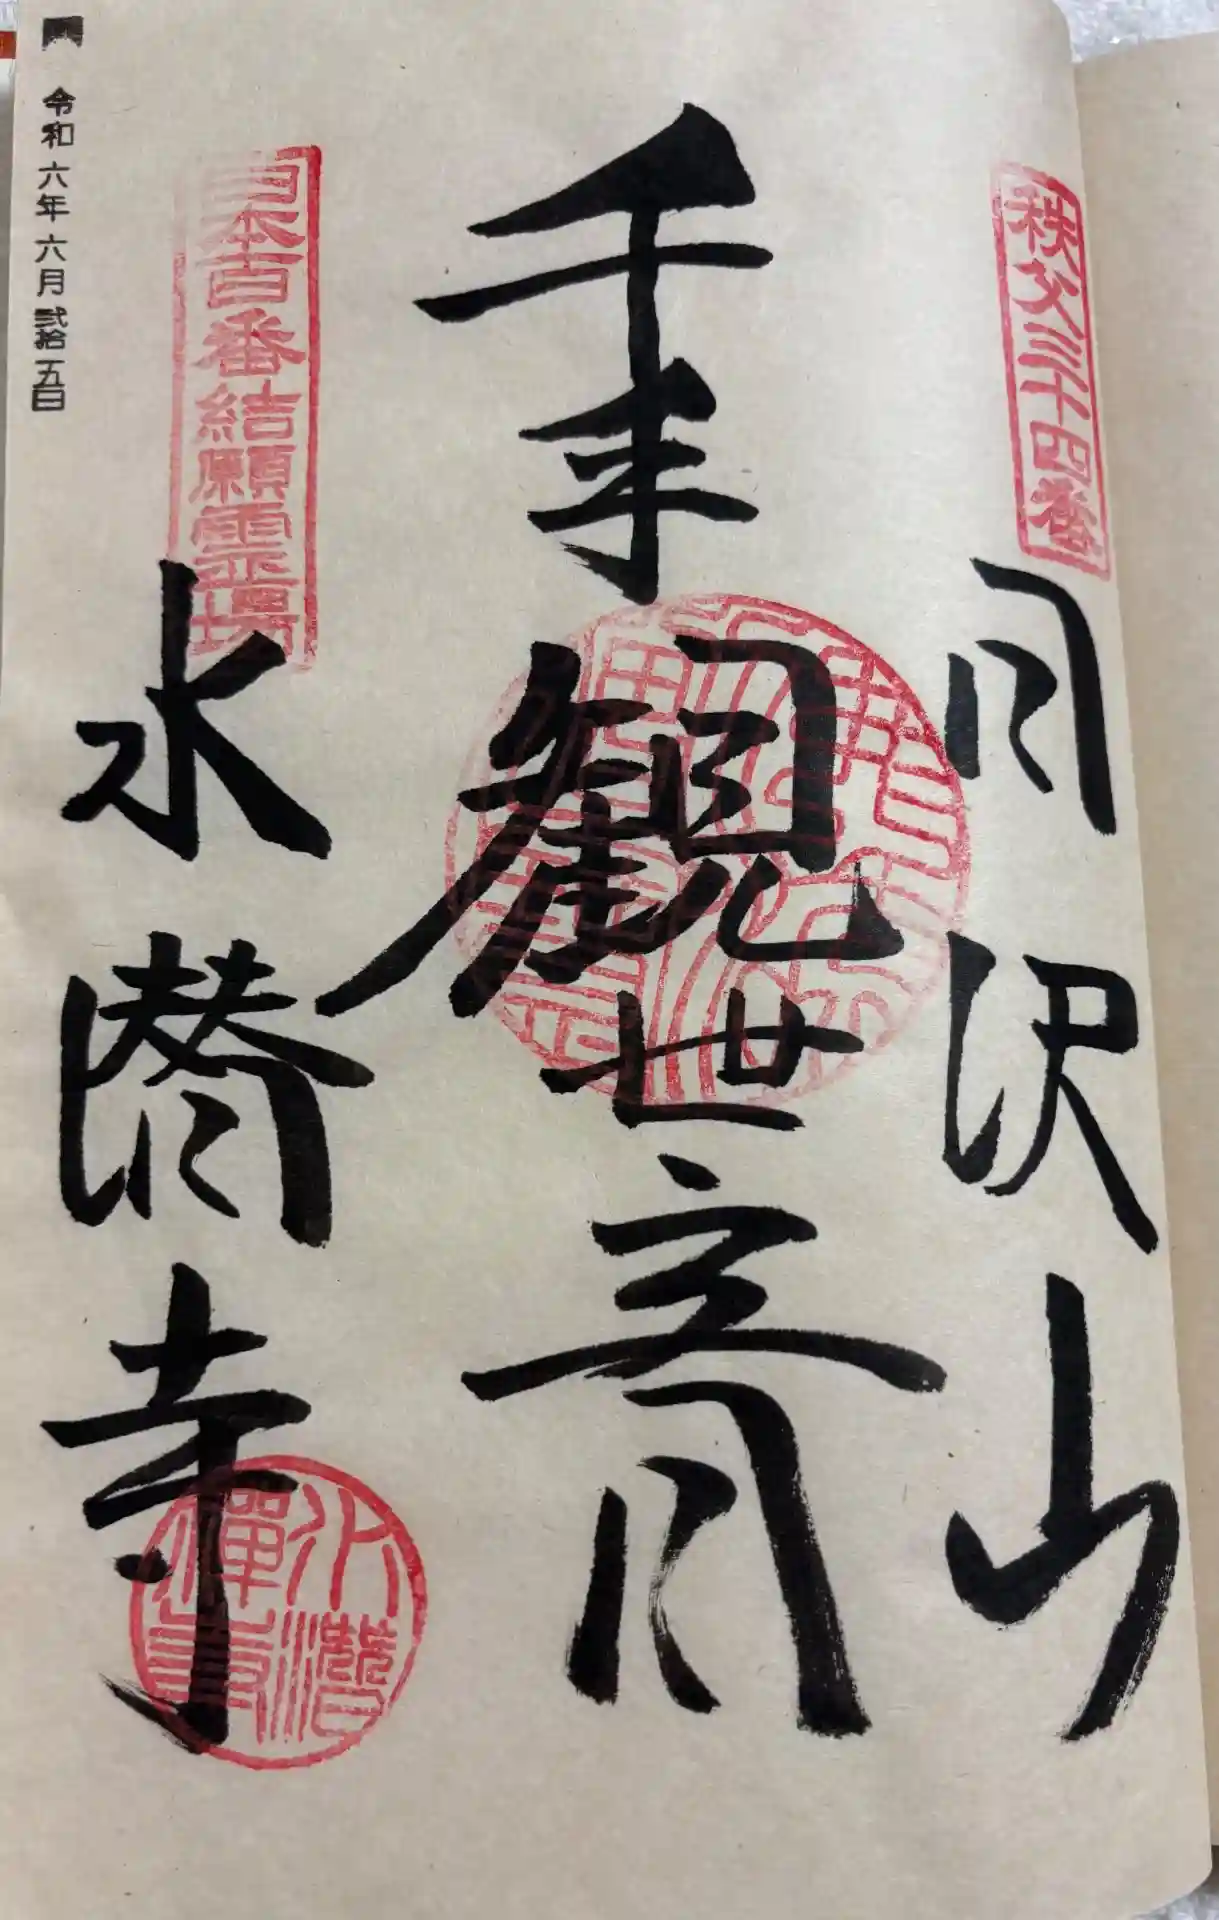 秩父三十四番
日沢山
千手観世音
日本百番結願霊場
水潜寺
水潜禅寺
令和六年六月弐拾五日